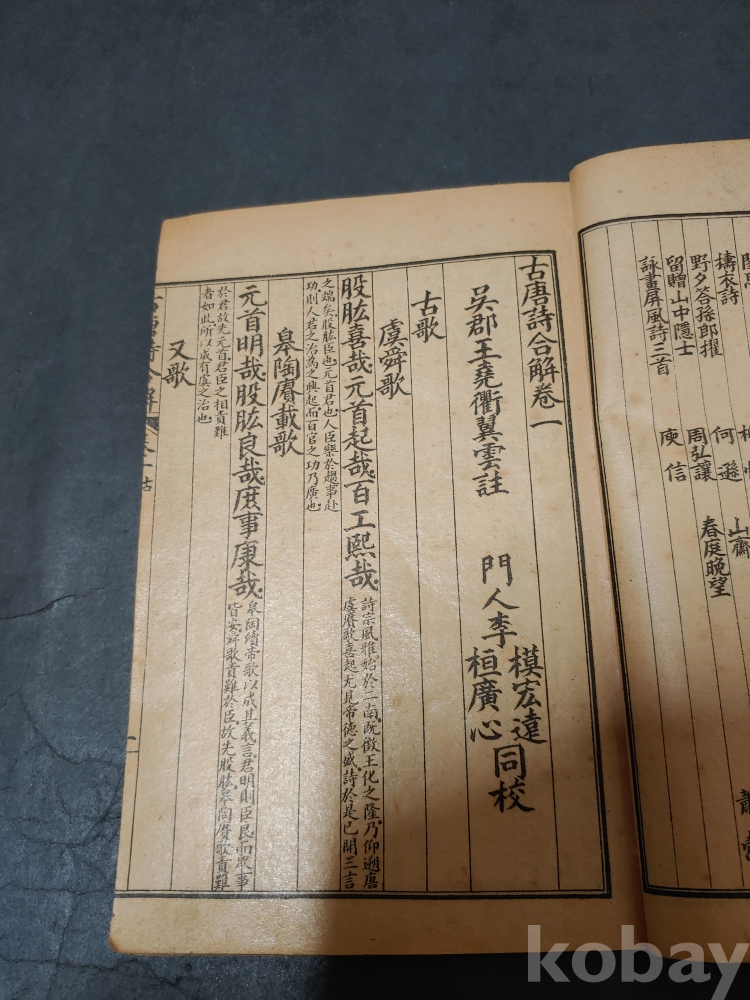 檮衣詩
何遜
山齋
野夕答孫郎擢
周弘讓
春庭晚望
留贈山中隱士
庾信
詠畫屏風詩三首
古唐詩合解卷一
吳郡王堯衢翼雲註
門人李
模宏遠
桓廣心
同校
古歌
虞舜歌
股肱喜哉元首起哉百工熙哉
詩宗風雅始於二南既徵王化之隆乃仰遡唐
虞賡歌喜起尤見帝德之盛詩於是已開三言
之端矣股肱臣也元首君也人臣樂於趨事赴
功則人君之治為之興起而百官之功乃廣也
皋陶賡載歌
元首明哉股肱良哉庶事康哉
皋陶續帝歌以成其義言君明則臣良而眾事
皆安舜歌責難於臣故先股肱皋陶賡歌責難
於君故先元首君臣之相責難
者如此所以成有虞之治也
又歌